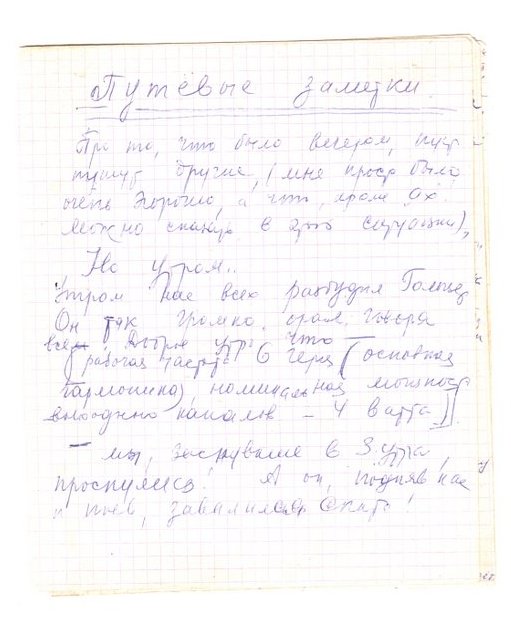 Путевые заметки.
Про то, что было вечером, пусть
пишут другие, (мне просто было
очень хорошо, а что, кроме ах
можно сказать в этой ситуации),
Но утром..
Утром нас всех разбудил
Он так громко орал, говоря
всем Доброе утро, что
рабочая частота 6 герц (основная
гармоника), номинальная мощность
выходного каналов - 4 Ватта)
- мы, заснувшие в 3 утра,
проснулись! А он, подняв нас
и поев, завалился спать!